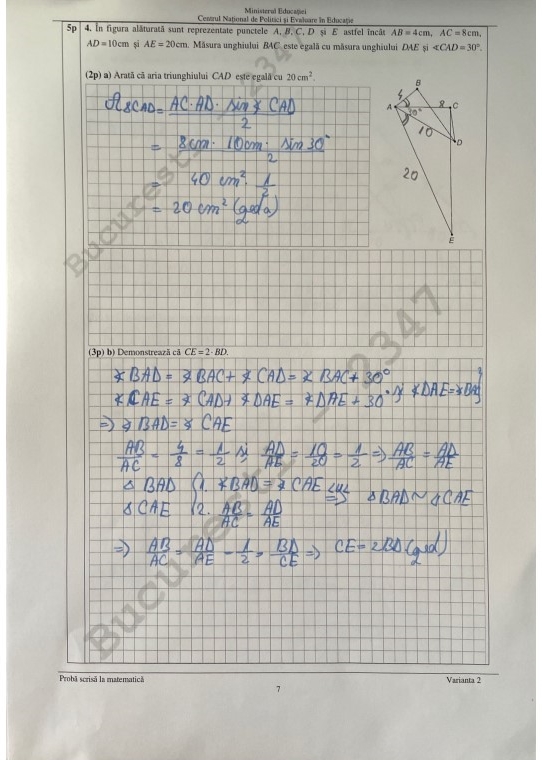 Ministerul Educației
Centrul Național de Politici și Evaluare în Educație
5p 4. În figura alăturată sunt reprezentate punctele A, B, C, D și E astfel încât AB = 4cm, AC = 8cm,
AD = 10cm și AE = 20cm. Măsura unghiului BAC este egală cu măsura unghiului DAE și ∢CAD = 30°.
(2p) a) Arată că aria triunghiului CAD este egală cu 20 cm².
A ΔCAD = AC·AD·sin∢CAD / 2
= 8cm · 10cm · sin30° / 2
= 40 cm² · 1/2
= 20 cm² (qed a)
B
4
A 8 C
30°
10
D
20
E
(3p) b) Demonstrează că CE = 2·BD.
∢BAD = ∢BAC + ∢CAD = ∢BAC + 30°
∢CAE = ∢CAD + ∢DAE = ∢DAE + 30° și ∢DAE = ∢BAC
=> ∢BAD = ∢CAE
AB/AC = 4/8 = 1/2 și AD/AE = 10/20 = 1/2 => AB/AC = AD/AE
Δ BAD 1. ∢BAD = ∢CAE => Δ BAD ~ Δ CAE
Δ CAE 2. AB/AC = AD/AE
=> AB/AC = AD/AE = 1/2 = BD/CE => CE = 2BD (qed)
Probă scrisă la matematică Varianta 2
7
Bucuresti 2347
Bucuresti